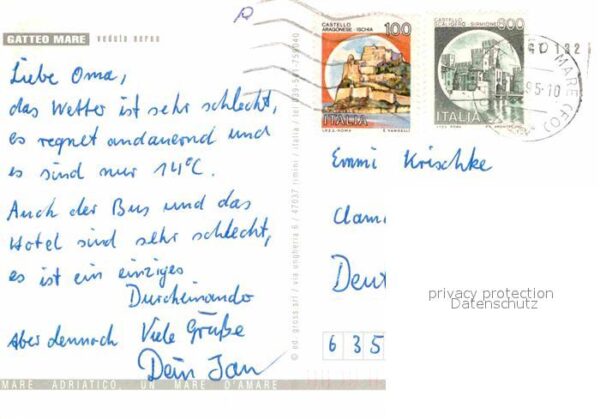 GATTEO MARE veduta aerea
Liebe Oma,
das Wetter ist sehr schlecht,
es regnet andauernd und
es sind nur 14°C.
Auch der Bus und das
Hotel sind sehr schlecht,
es ist ein einziges
Durcheinando
Aber dennoch Viele Grüße
Dein Jan
MARE ADRIATICO, UN MARE D'AMARE
© ed. gross srl / via ungheria 6 / 47037 rimini / italia / tel.
CASTELLO
ARAGONESE - ISCHIA
100
ITALIA
CASTELLO
SCALIGERO - SIRMIONE
800
ITALIA
MARE (FO)
95-10
Emmi Krischke
Deut
635
privacy protection
Datenschutz